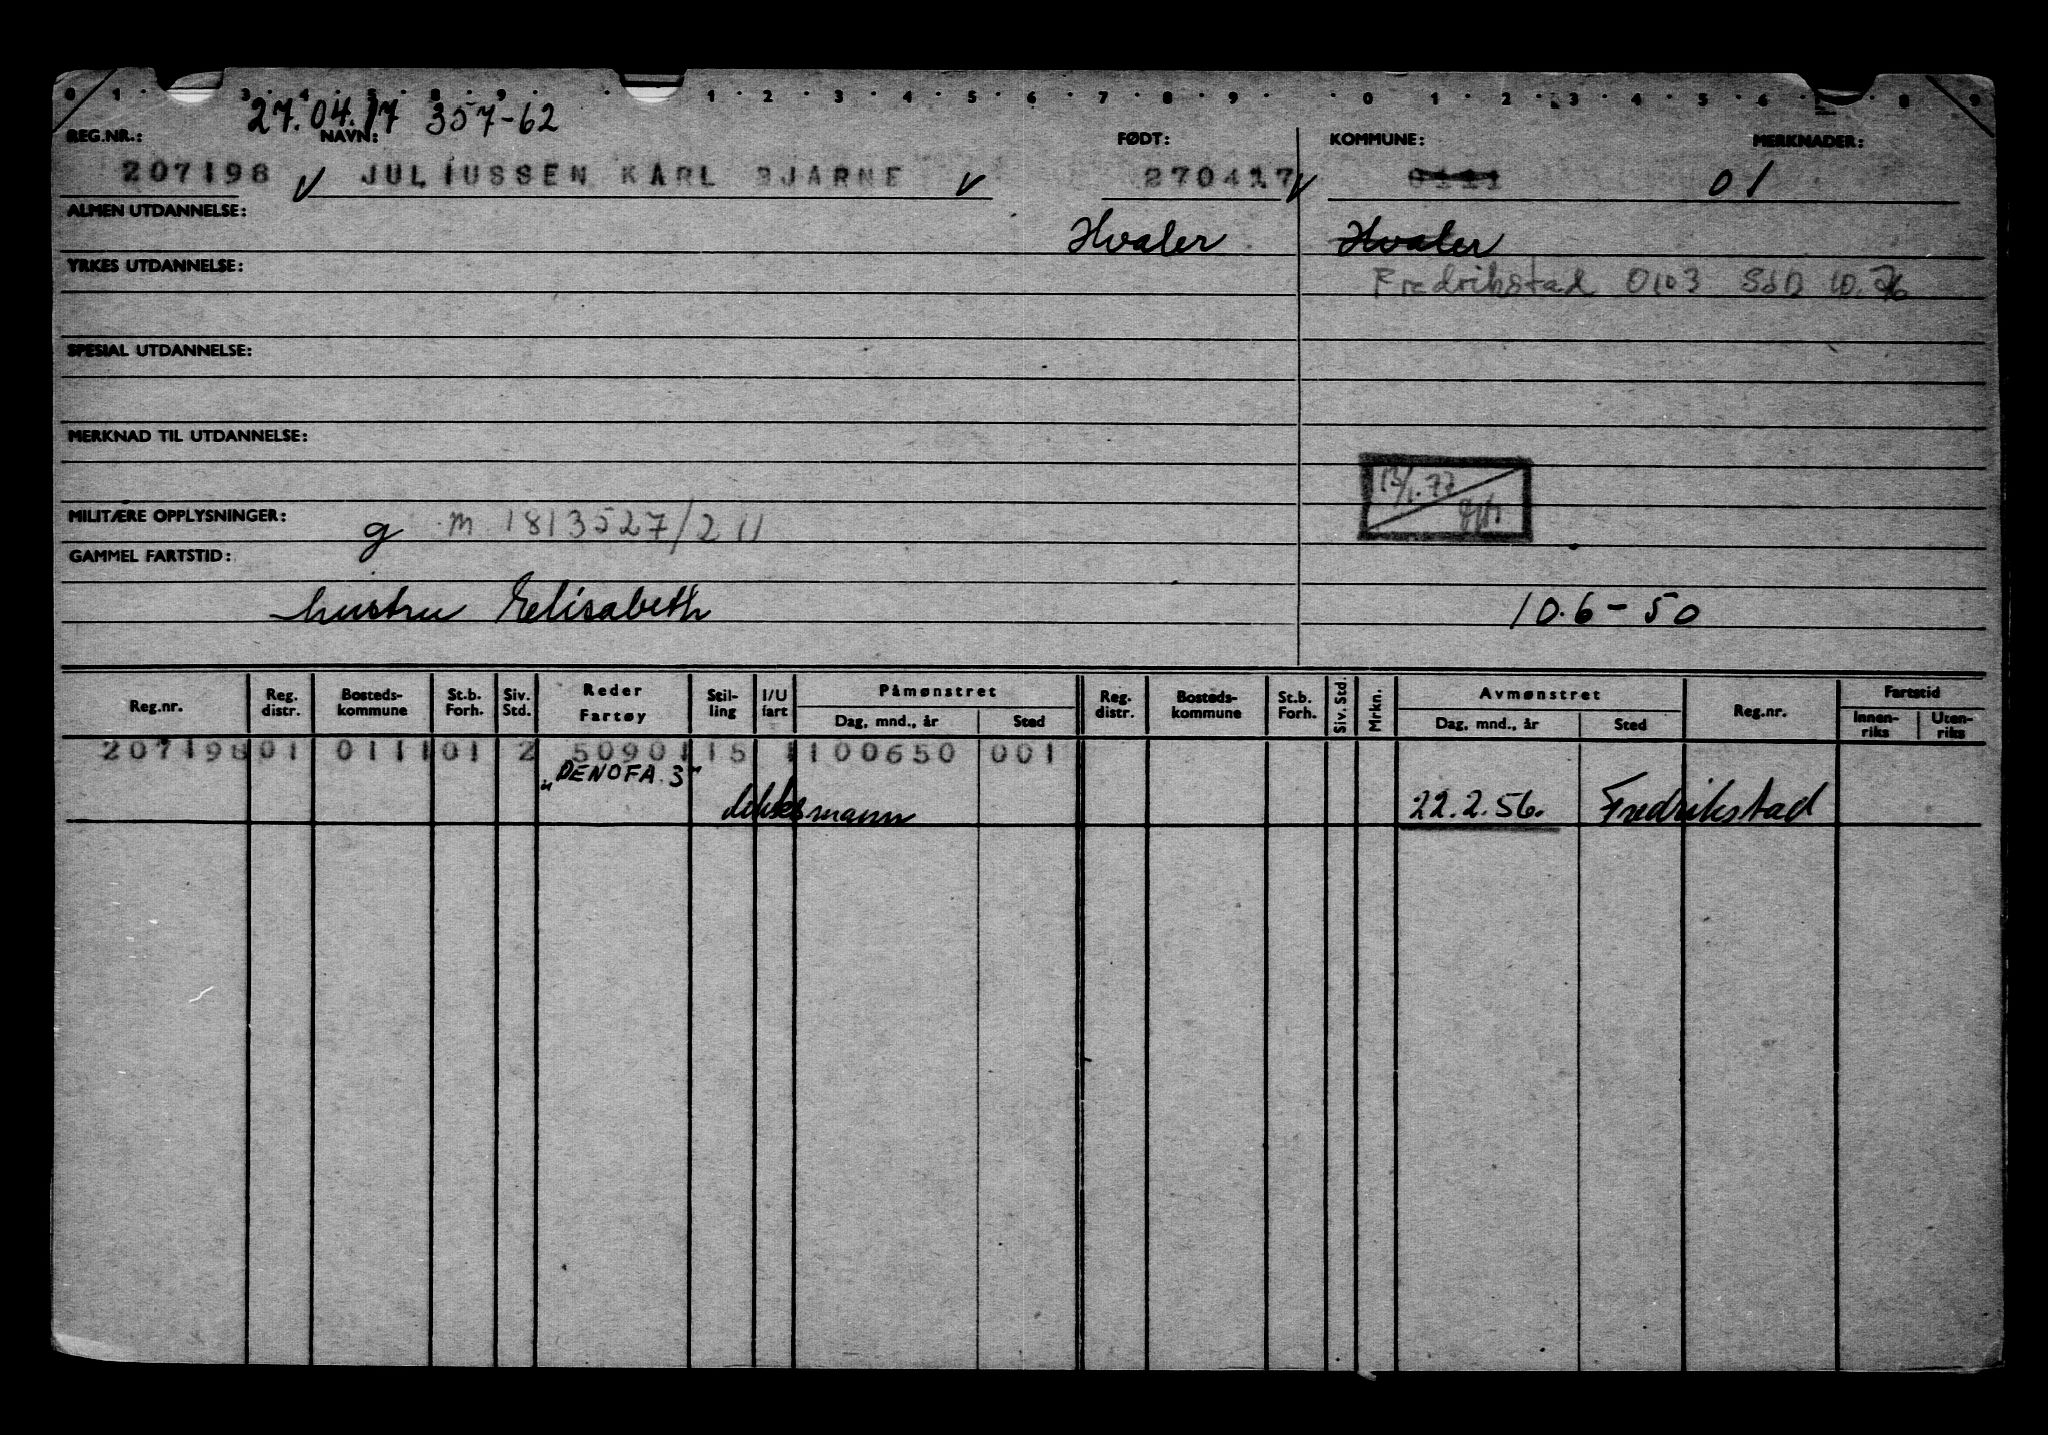 0 1 · 3 · 4 · 5 · 8 · 9 · · 1 · 2 · 3 · 4 · 5 · 6 · 7 · 8 · 9 · 0 · 1 · 2 · 3 · 4 · 5 · 6 · 8 · 9
27.04.17 357-62
REG.NR.: NAVN: FØDT: KOMMUNE: MERKNADER:
207198 JULIUSSEN KARL BJARNE 270417 0111 01
ALMEN UTDANNELSE: Hvaler Hvaler
YRKES UTDANNELSE: Fredrikstad 0103 SSD 10.76
SPESIAL UTDANNELSE:
MERKNAD TIL UTDANNELSE:
13/1.77
MILITÆRE OPPLYSNINGER: g m 1813527/211
GAMMEL FARTSTID:
hustru Elisabeth 10.6-50
Reg.nr. Reg. distr. Bosteds-kommune St.b. Forh. Siv. Std. Reder Fartøy Stil-ling I/U fart Påmønstret Dag, mnd., år Sted Reg. distr. Bosteds-kommune St.b. Forh. Siv. Std. Mrkn. Avmønstret Dag, mnd., år Sted Reg.nr. Fartstid Innen-riks Uten-riks
207198 01 0111 01 2 50901 15 1 100650 001
"DENOFA 3"
dekksmann 22.2.56. Fredrikstad